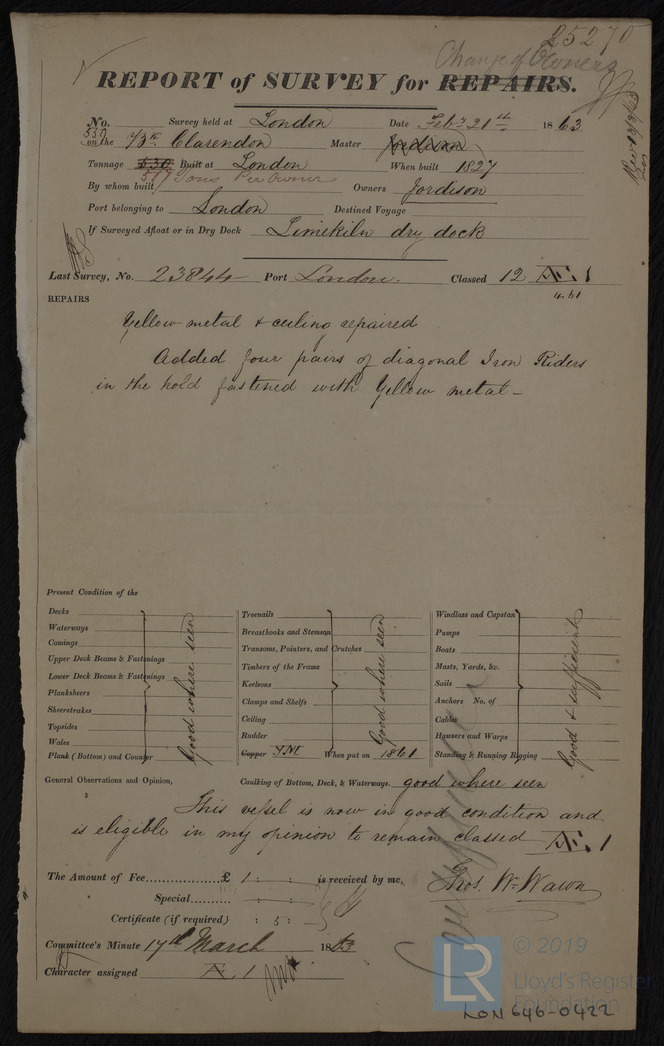 25270
Change of Owners
REPORT of SURVEY for REPAIRS.
No. Survey held at London Date Feby 21th 1863
550 on the Bk Clarendon Master Jordison
Tonnage 530 Built at London When built 1827
517 Tons Per Owner
By whom built Owners Jordison
Port belonging to London Destined Voyage
If Surveyed Afloat or in Dry Dock Limekiln dry dock
Last Survey, No. 23844 Port London. Classed 12 Æ 1
4.61
REPAIRS
Yellow metal & ceiling repaired
Added four pairs of diagonal Iron Riders
in the hold fastened with Yellow metal -
Present Condition of the
Decks
Waterways
Comings
Upper Deck Beams & Fastenings
Lower Deck Beams & Fastenings
Planksheers
Sheerstrakes
Topsides
Wales
Plank (Bottom) and Counter
Good where seen
Treenails
Breasthooks and Stemson
Transoms, Pointers, and Crutches
Timbers of the Frame
Keelsons
Clamps and Shelfs
Ceiling
Rudder
Copper YM When put on 1861
Good where seen
Windlass and Capstan
Pumps
Boats
Masts, Yards, &c.
Sails
Anchors No. of
Cables
Hausers and Warps
Standing & Running Rigging
Good & sufficient
General Observations and Opinion, Caulking of Bottom, Deck, & Waterways. good where seen
This vessel is now in good condition and
is eligible in my opinion to remain classed Æ 1
The Amount of Fee............... £ 1 : : is received by me,
Thos. Wm Wawn
Special.......... : :
Certificate (if required) : 5 :
Committee's Minute 17th March 1863
Character assigned Æ 1
© 2019
LR
Lloyd's Register
Foundation
LON 646-0422